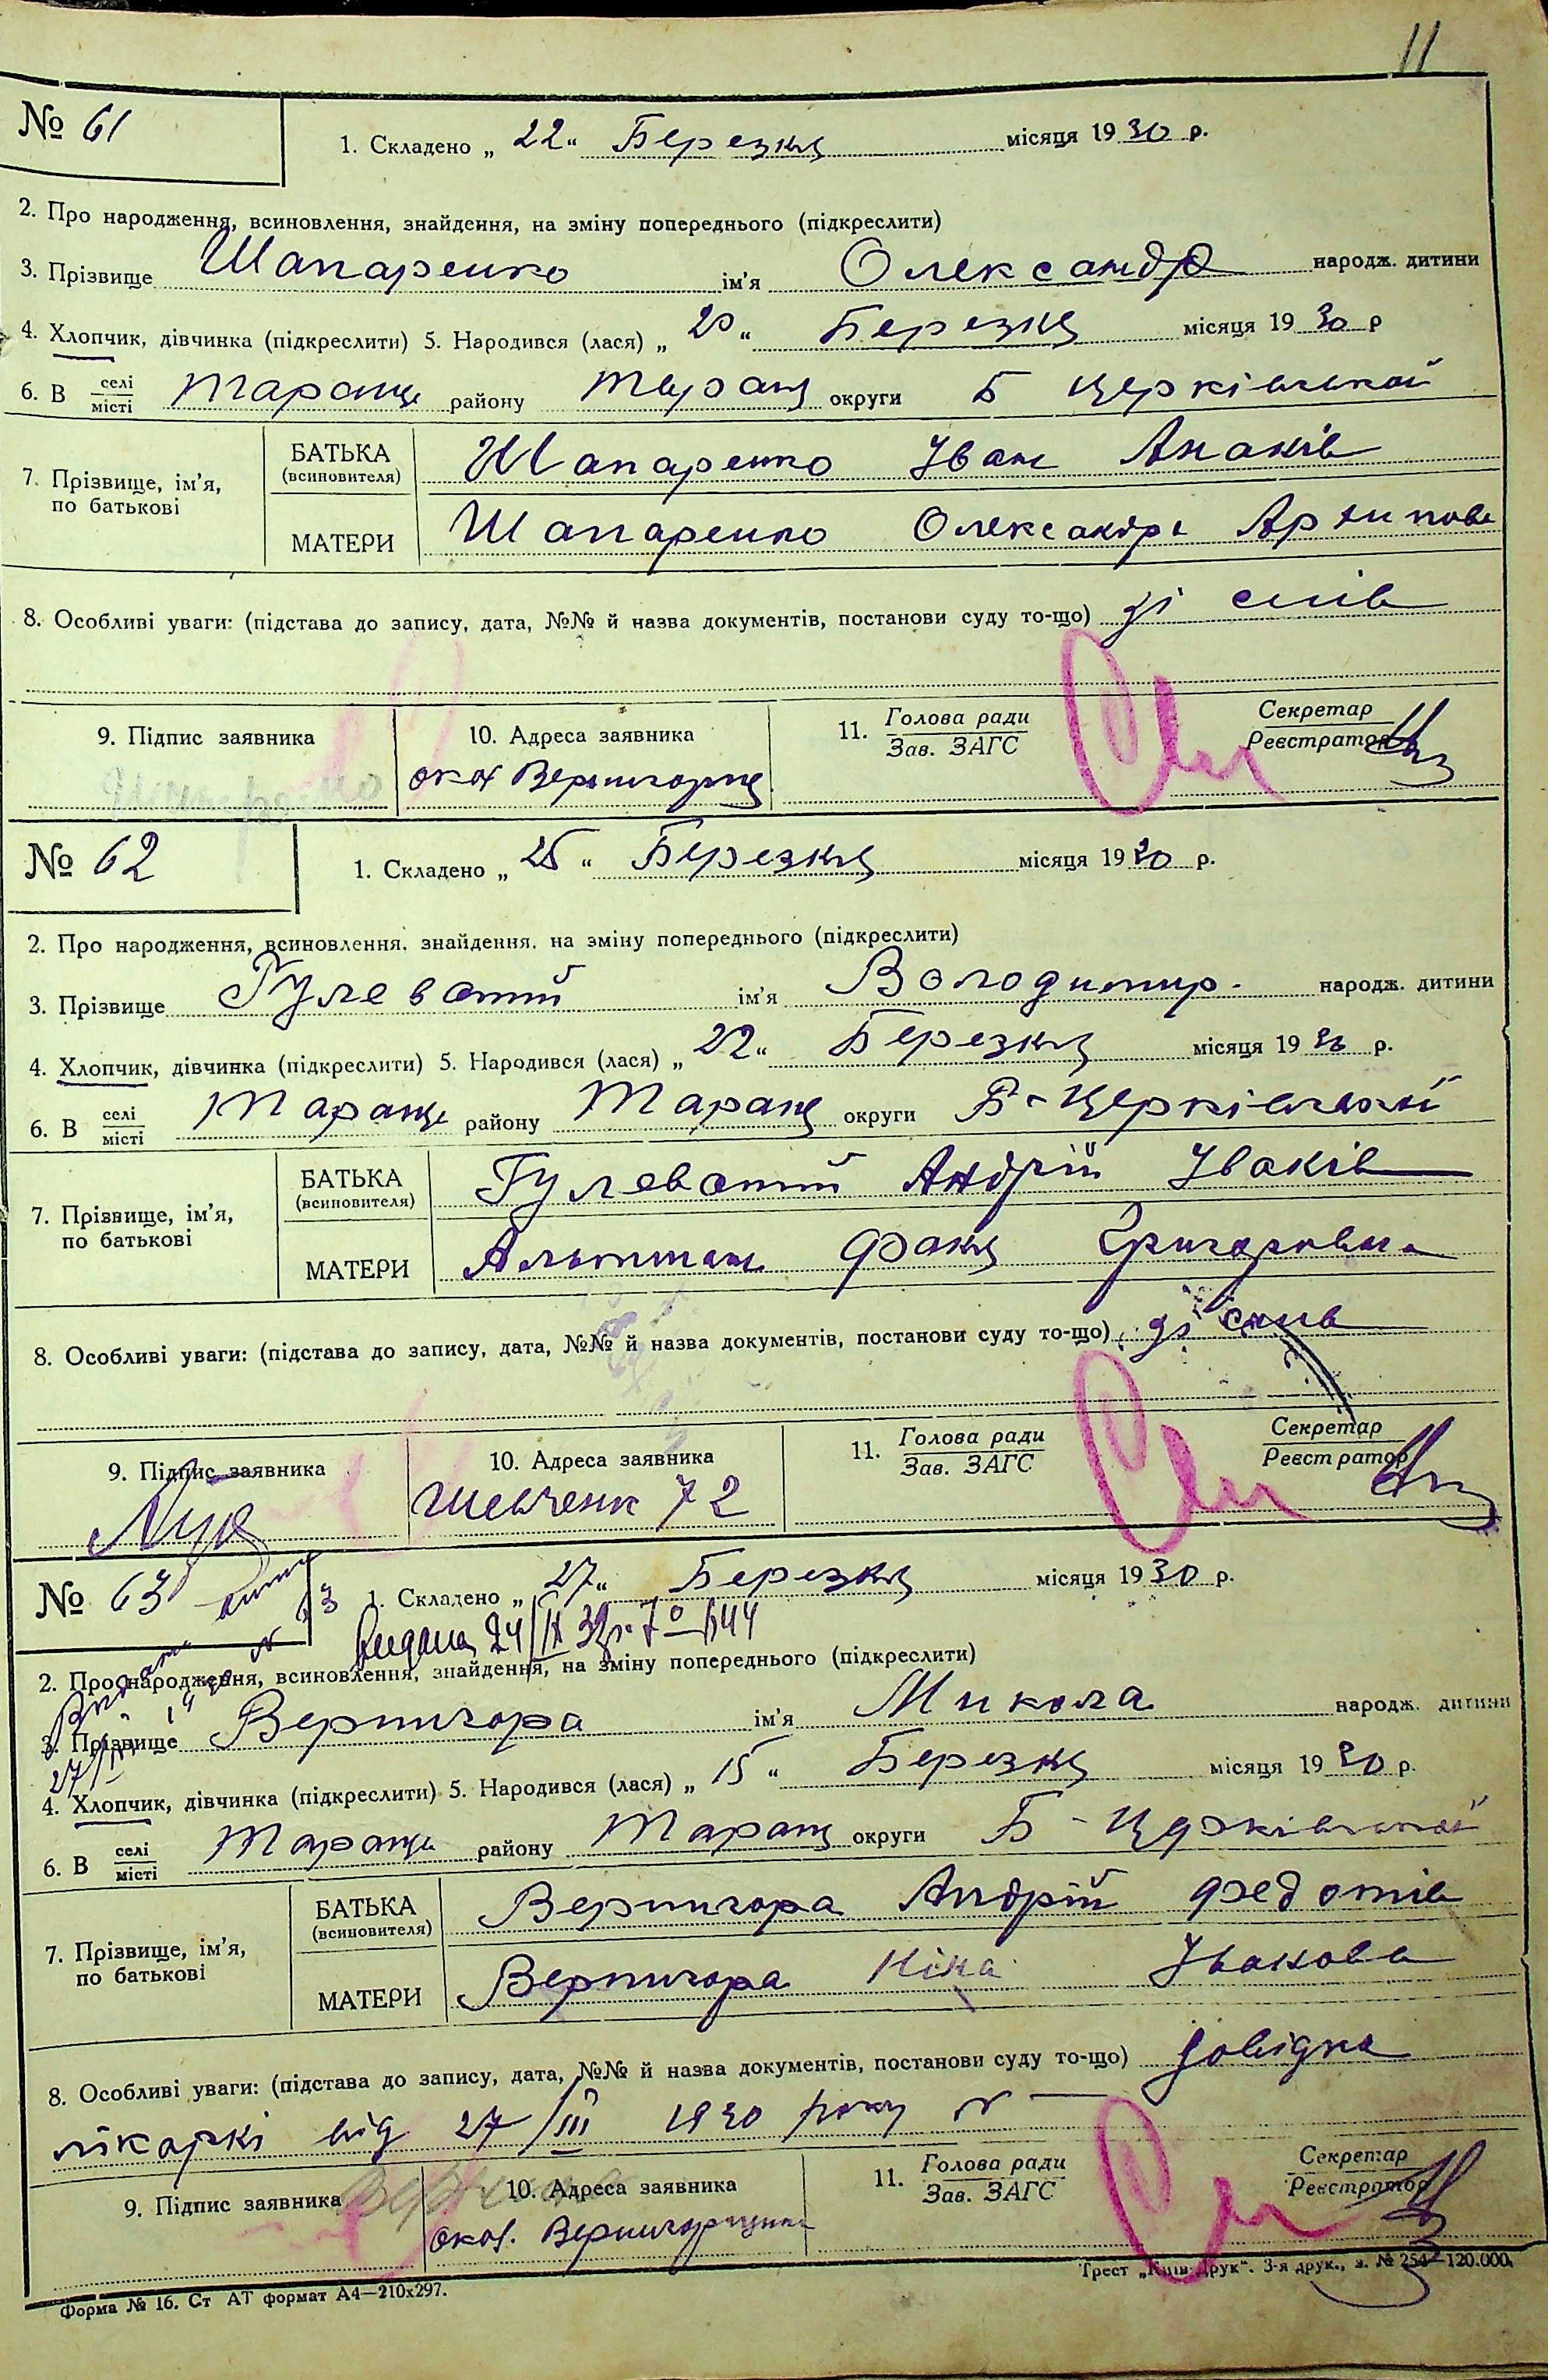 11
№ 61
1. Складено „ 22 “ Березня місяця 1930 р.
2. Про народження, всиновлення, знайдення, на зміну попереднього (підкреслити)
3. Прізвище Шапаренко ім’я Олександр народж. дитини
4. Хлопчик, дівчинка (підкреслити) 5. Народився (лася) „ 20 “ Березня місяця 1930 р
6. В селі/місті Тараще району Таращ округи Б Церківської
7. Прізвище, ім’я, по батькові
БАТЬКА (всиновителя) Шапаренко Іван
МАТЕРИ Шапаренко Олександра Архипова
8. Особливі уваги: (підстава до запису, дата, №№ й назва документів, постанови суду то-що) зі слів
9. Підпис заявника
10. Адреса заявника
11. Голова ради / Зав. ЗАГС
Секретар / Реєстратор
№ 62
1. Складено „ 25 “ Березня місяця 1930 р.
2. Про народження, всиновлення, знайдення, на зміну попереднього (підкреслити)
3. Прізвище Гулеватий ім’я Володимир. народж. дитини
4. Хлопчик, дівчинка (підкреслити) 5. Народився (лася) „ 22 “ Березня місяця 1930 р.
6. В селі/місті Тараще району Таращ округи Б-Церківської
7. Прізвище, ім’я, по батькові
БАТЬКА (всиновителя) Гулеватий Андрій Іванів
МАТЕРИ Альтман Фаня Григоровна
8. Особливі уваги: (підстава до запису, дата, №№ й назва документів, постанови суду то-що) зі слів
9. Підпис заявника
10. Адреса заявника
Шевченк 72
11. Голова ради / Зав. ЗАГС
Секретар / Реєстратор
№ 63
1. Складено „ 27 “ Березня місяця 1930 р.
2. Про народження, всиновлення, знайдення, на зміну попереднього (підкреслити)
3. Прізвище Вернигора ім’я Микола народж. дитини
4. Хлопчик, дівчинка (підкреслити) 5. Народився (лася) „ 15 “ Березня місяця 1930 р.
6. В селі/місті Тараще району Таращ округи Б-Церківської
7. Прізвище, ім’я, по батькові
БАТЬКА (всиновителя) Вернигора Андрій Федотів
МАТЕРИ Вернигора Ніна Іванова
8. Особливі уваги: (підстава до запису, дата, №№ й назва документів, постанови суду то-що) довідка
лікаркі від 27/III 1930 року №
9. Підпис заявника
10. Адреса заявника
11. Голова ради / Зав. ЗАГС
Секретар / Реєстратор
Форма № 16. Ст АТ формат А4—210x297.
Трест „Київ-Друк“. 3-я друк., з. № 254—120.000.